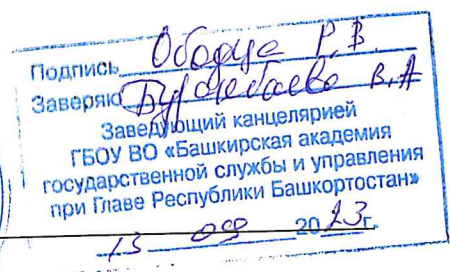 Подпись Ободца Р.В.
Заверяю В.А
Заведующий канцелярией
ГБОУ ВО «Башкирская академия
государственной службы и управления
при Главе Республики Башкортостан»
13 09 2023г.